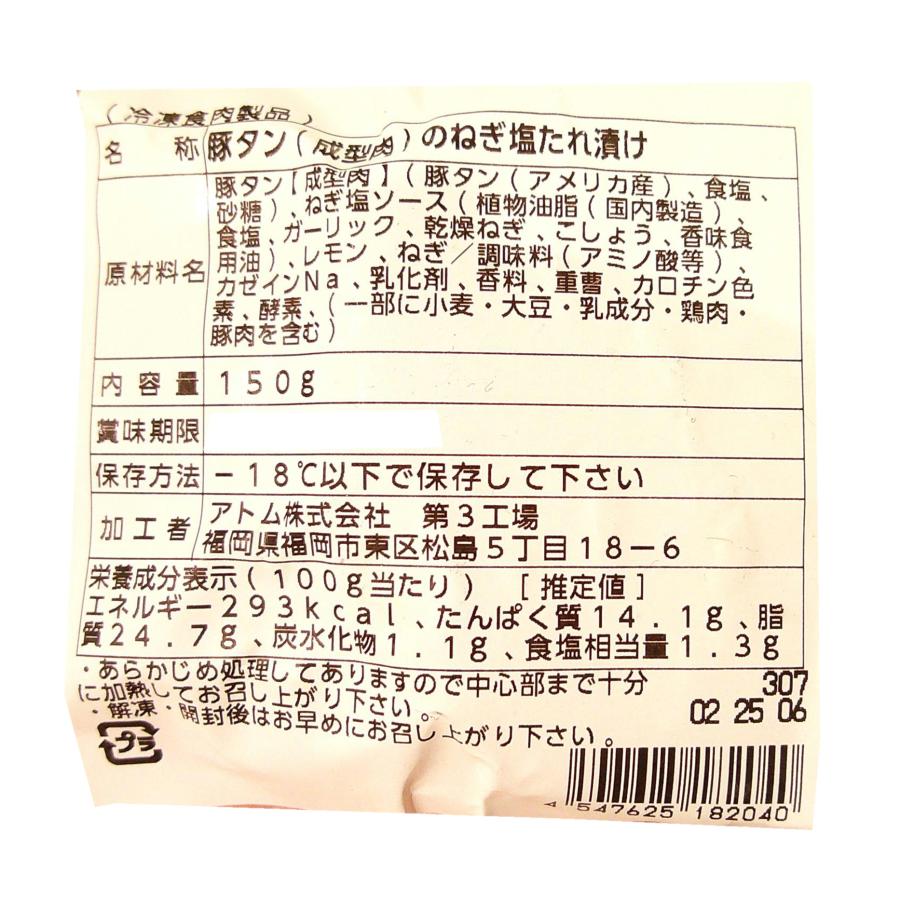 (冷凍食肉製品)
名称 豚タン(成型肉)のねぎ塩たれ漬け
原材料名
豚タン【成型肉】(豚タン(アメリカ産)、食塩、
砂糖)、ねぎ塩ソース(植物油脂(国内製造)、
食塩、ガーリック、乾燥ねぎ、こしょう、香味食
用油)、レモン、ねぎ/調味料(アミノ酸等)、
カゼインNa、乳化剤、香料、重曹、カロチン色
素、酵素、(一部に小麦・大豆・乳成分・鶏肉・
豚肉を含む)
内容量 150g
賞味期限
保存方法 -18℃以下で保存して下さい
加工者 アトム株式会社 第3工場
福岡県福岡市東区松島5丁目18-6
栄養成分表示(100g当たり) [推定値]
エネルギー293kcal、たんぱく質14.1g、脂
質24.7g、炭水化物1.1g、食塩相当量1.3g
・あらかじめ処理してありますので中心部まで十分
に加熱してお召し上がり下さい。
・解凍・開封後はお早めにお召し上がり下さい。
307
02 25 06
プラ
4 547625 182040